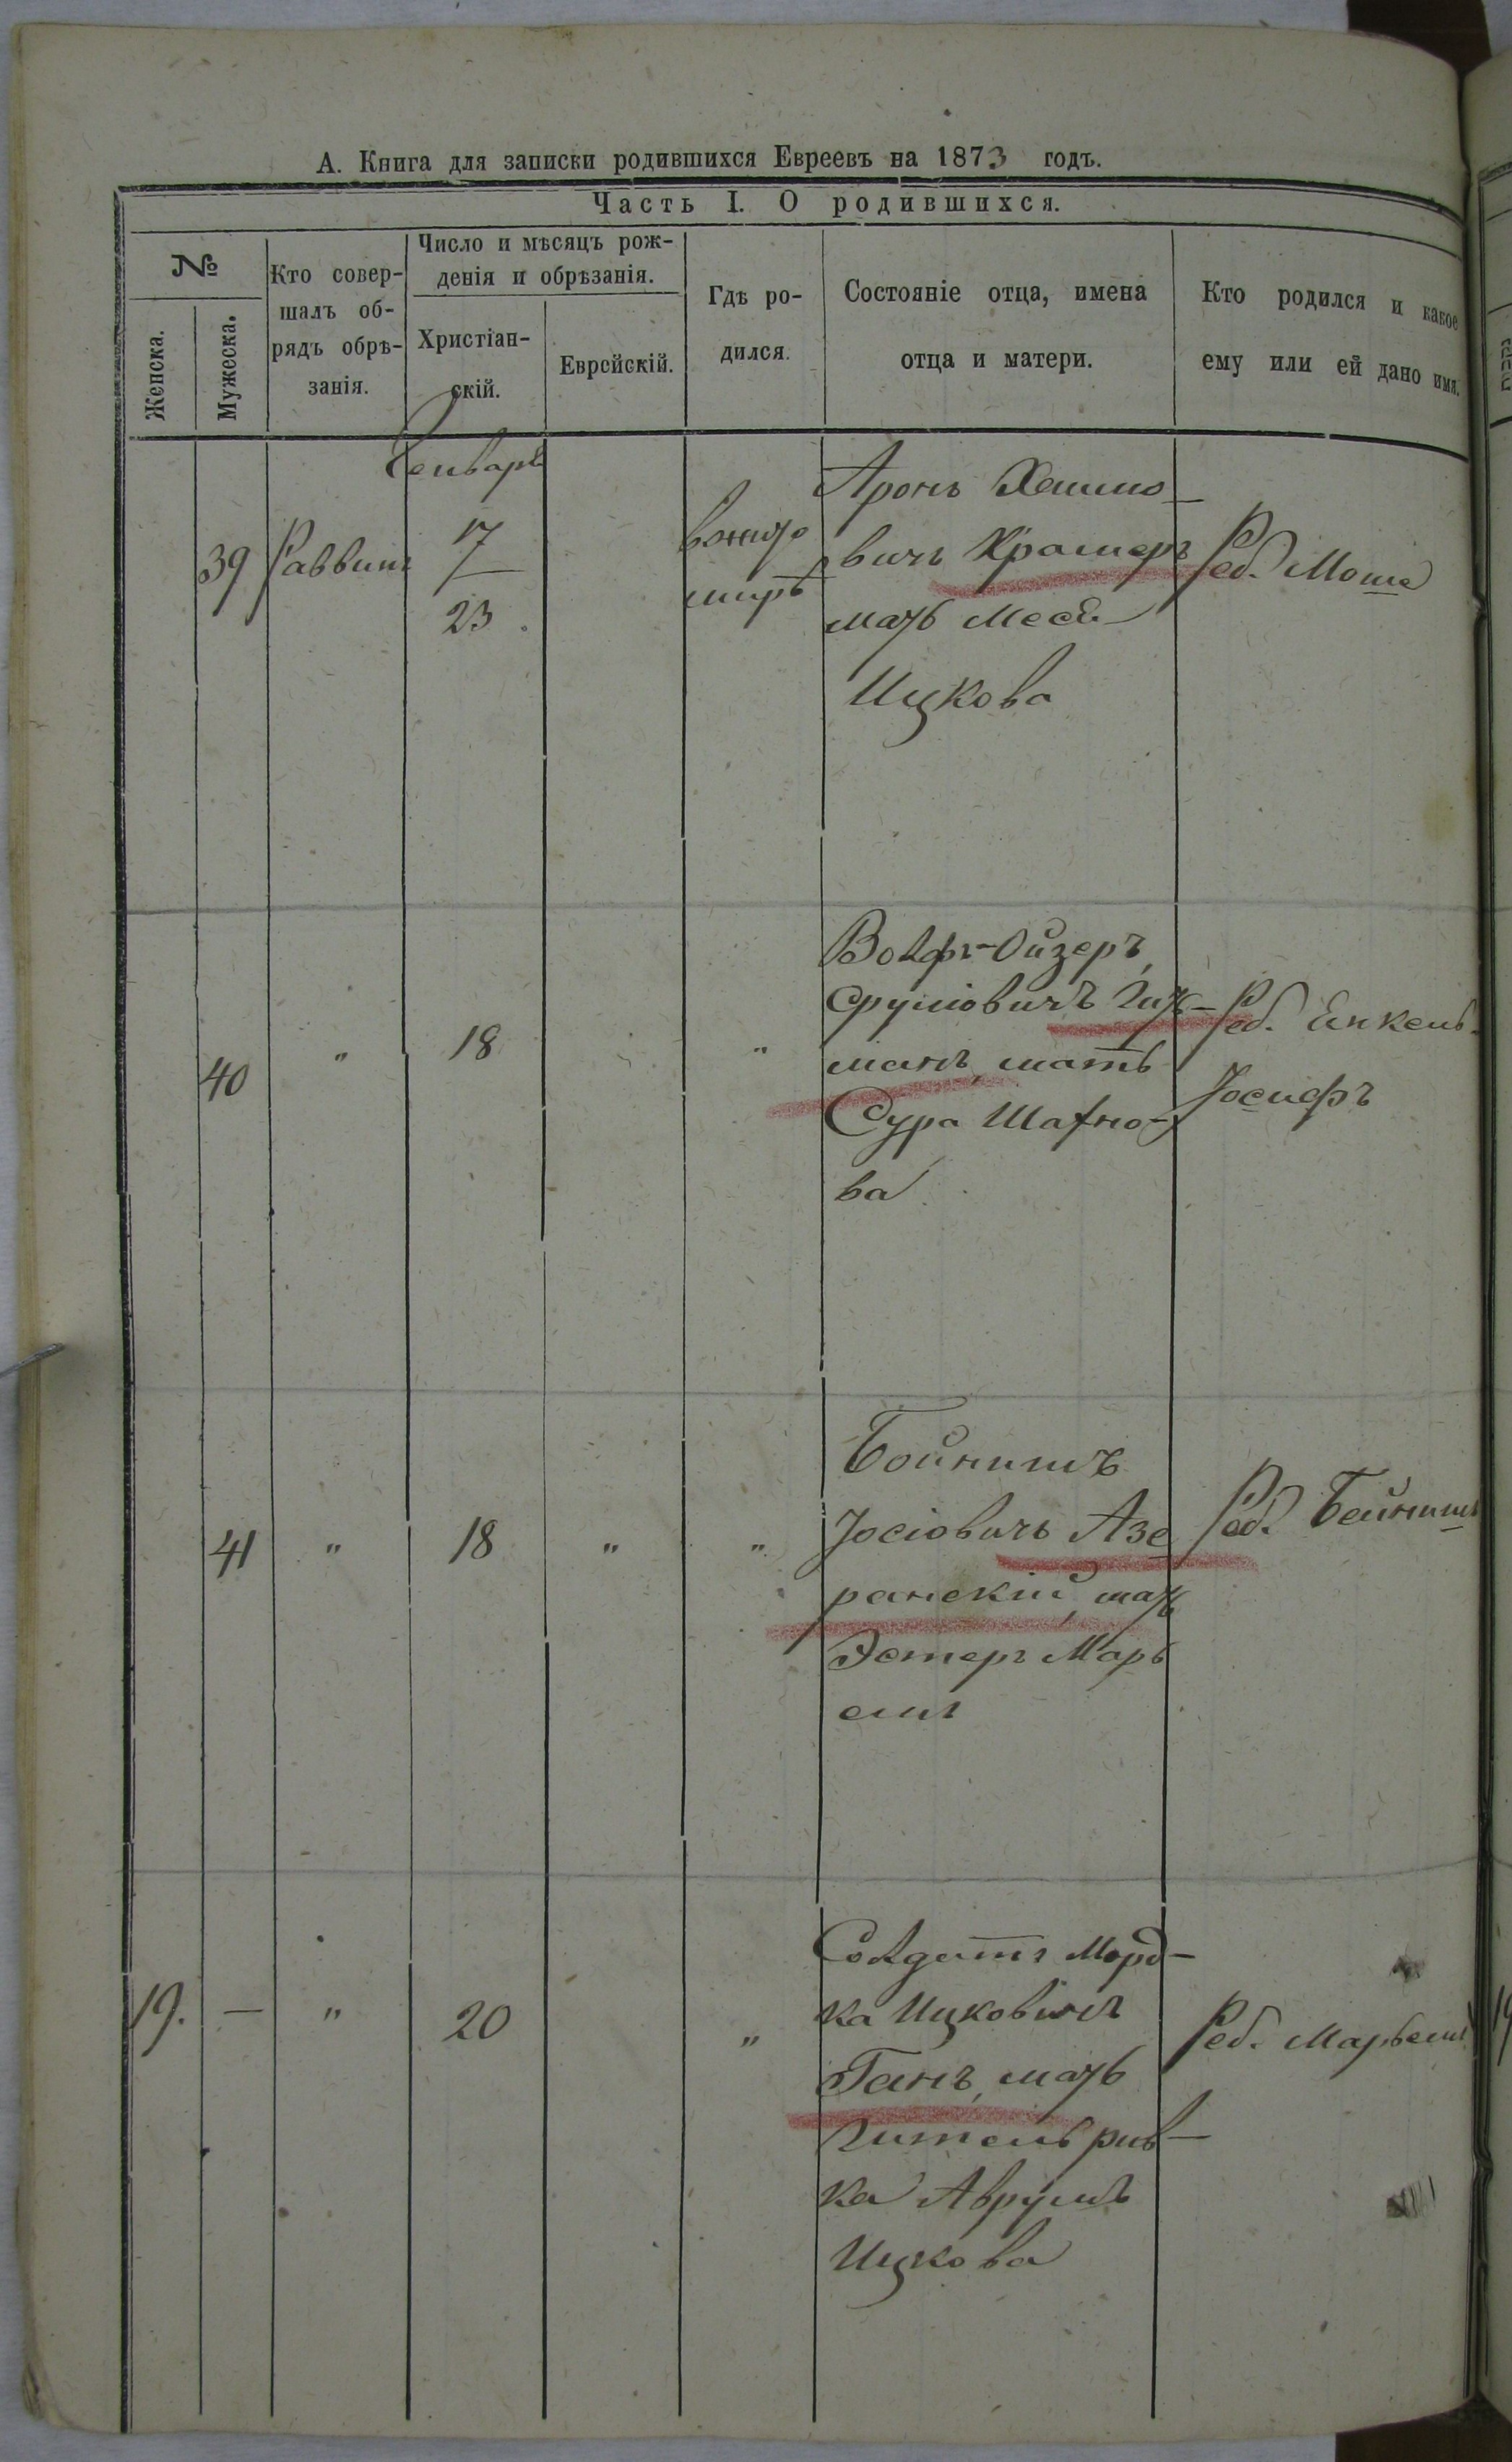 А. Книга для записки родившихся Евреевъ на 1873 годъ.
Часть I. О родившихся.
№
Женска.
Мужеска.
Кто совер-
шалъ об-
рядъ обрѣ-
занія.
Число и мѣсяцъ рож-
денія и обрѣзанія.
Христіан-
скій.
Еврейскій.
Гдѣ ро-
дился.
Состояніе отца, имена
отца и матери.
Кто родился и какое
ему или ей дано имя.
Генваря
39 Раввинъ
17
23.
вжито
миръ
Аронъ Хаимо-
вичъ Крамеръ
мать Меся
Ицкова
Реб. Моша
40 " 18 "
Волфъ-Ойзеръ,
Срулiовичъ Гит-
манъ, мать
Сура Шахно-
ва
Реб. Енкель-
Іосифъ
41 " 18 " "
Бойнишъ
Іосіовичъ Азе
ранскій, мать
Эстеръ Марь
емъ
Реб. Бейнишъ
19. — " 20 "
Солдатъ Морд-
ка Ицковичъ
Ганъ, мать
Гитель рив-
ка Аврумъ
Ицкова
Реб. Марьемъ